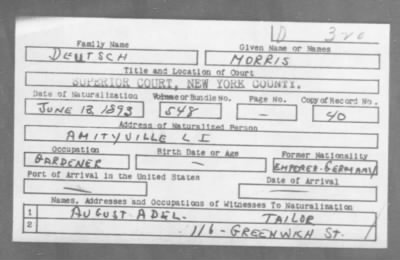 D 320
Family Name Given Name or Names
DEUTSCH MORRIS
Title and Location of Court
SUPERIOR COURT, NEW YORK COUNTY.
Date of Naturalization Volume or Bundle No. Page No. Copy of Record No.
JUNE 13, 1893 548 — 40
Address of Naturalized Person
AMITYVILLE L I
Occupation Birth Date or Age Former Nationality
GARDENER — EMPEROR-GERMANY
Port of Arrival in the United States Date of Arrival
— —
Names, Addresses and Occupations of Witnesses To Naturalization
1 AUGUST ADEL- TAILOR
2 116- GREENWICH ST.